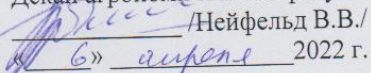 /Нейфельд В.В./
«6» апреля 2022 г.